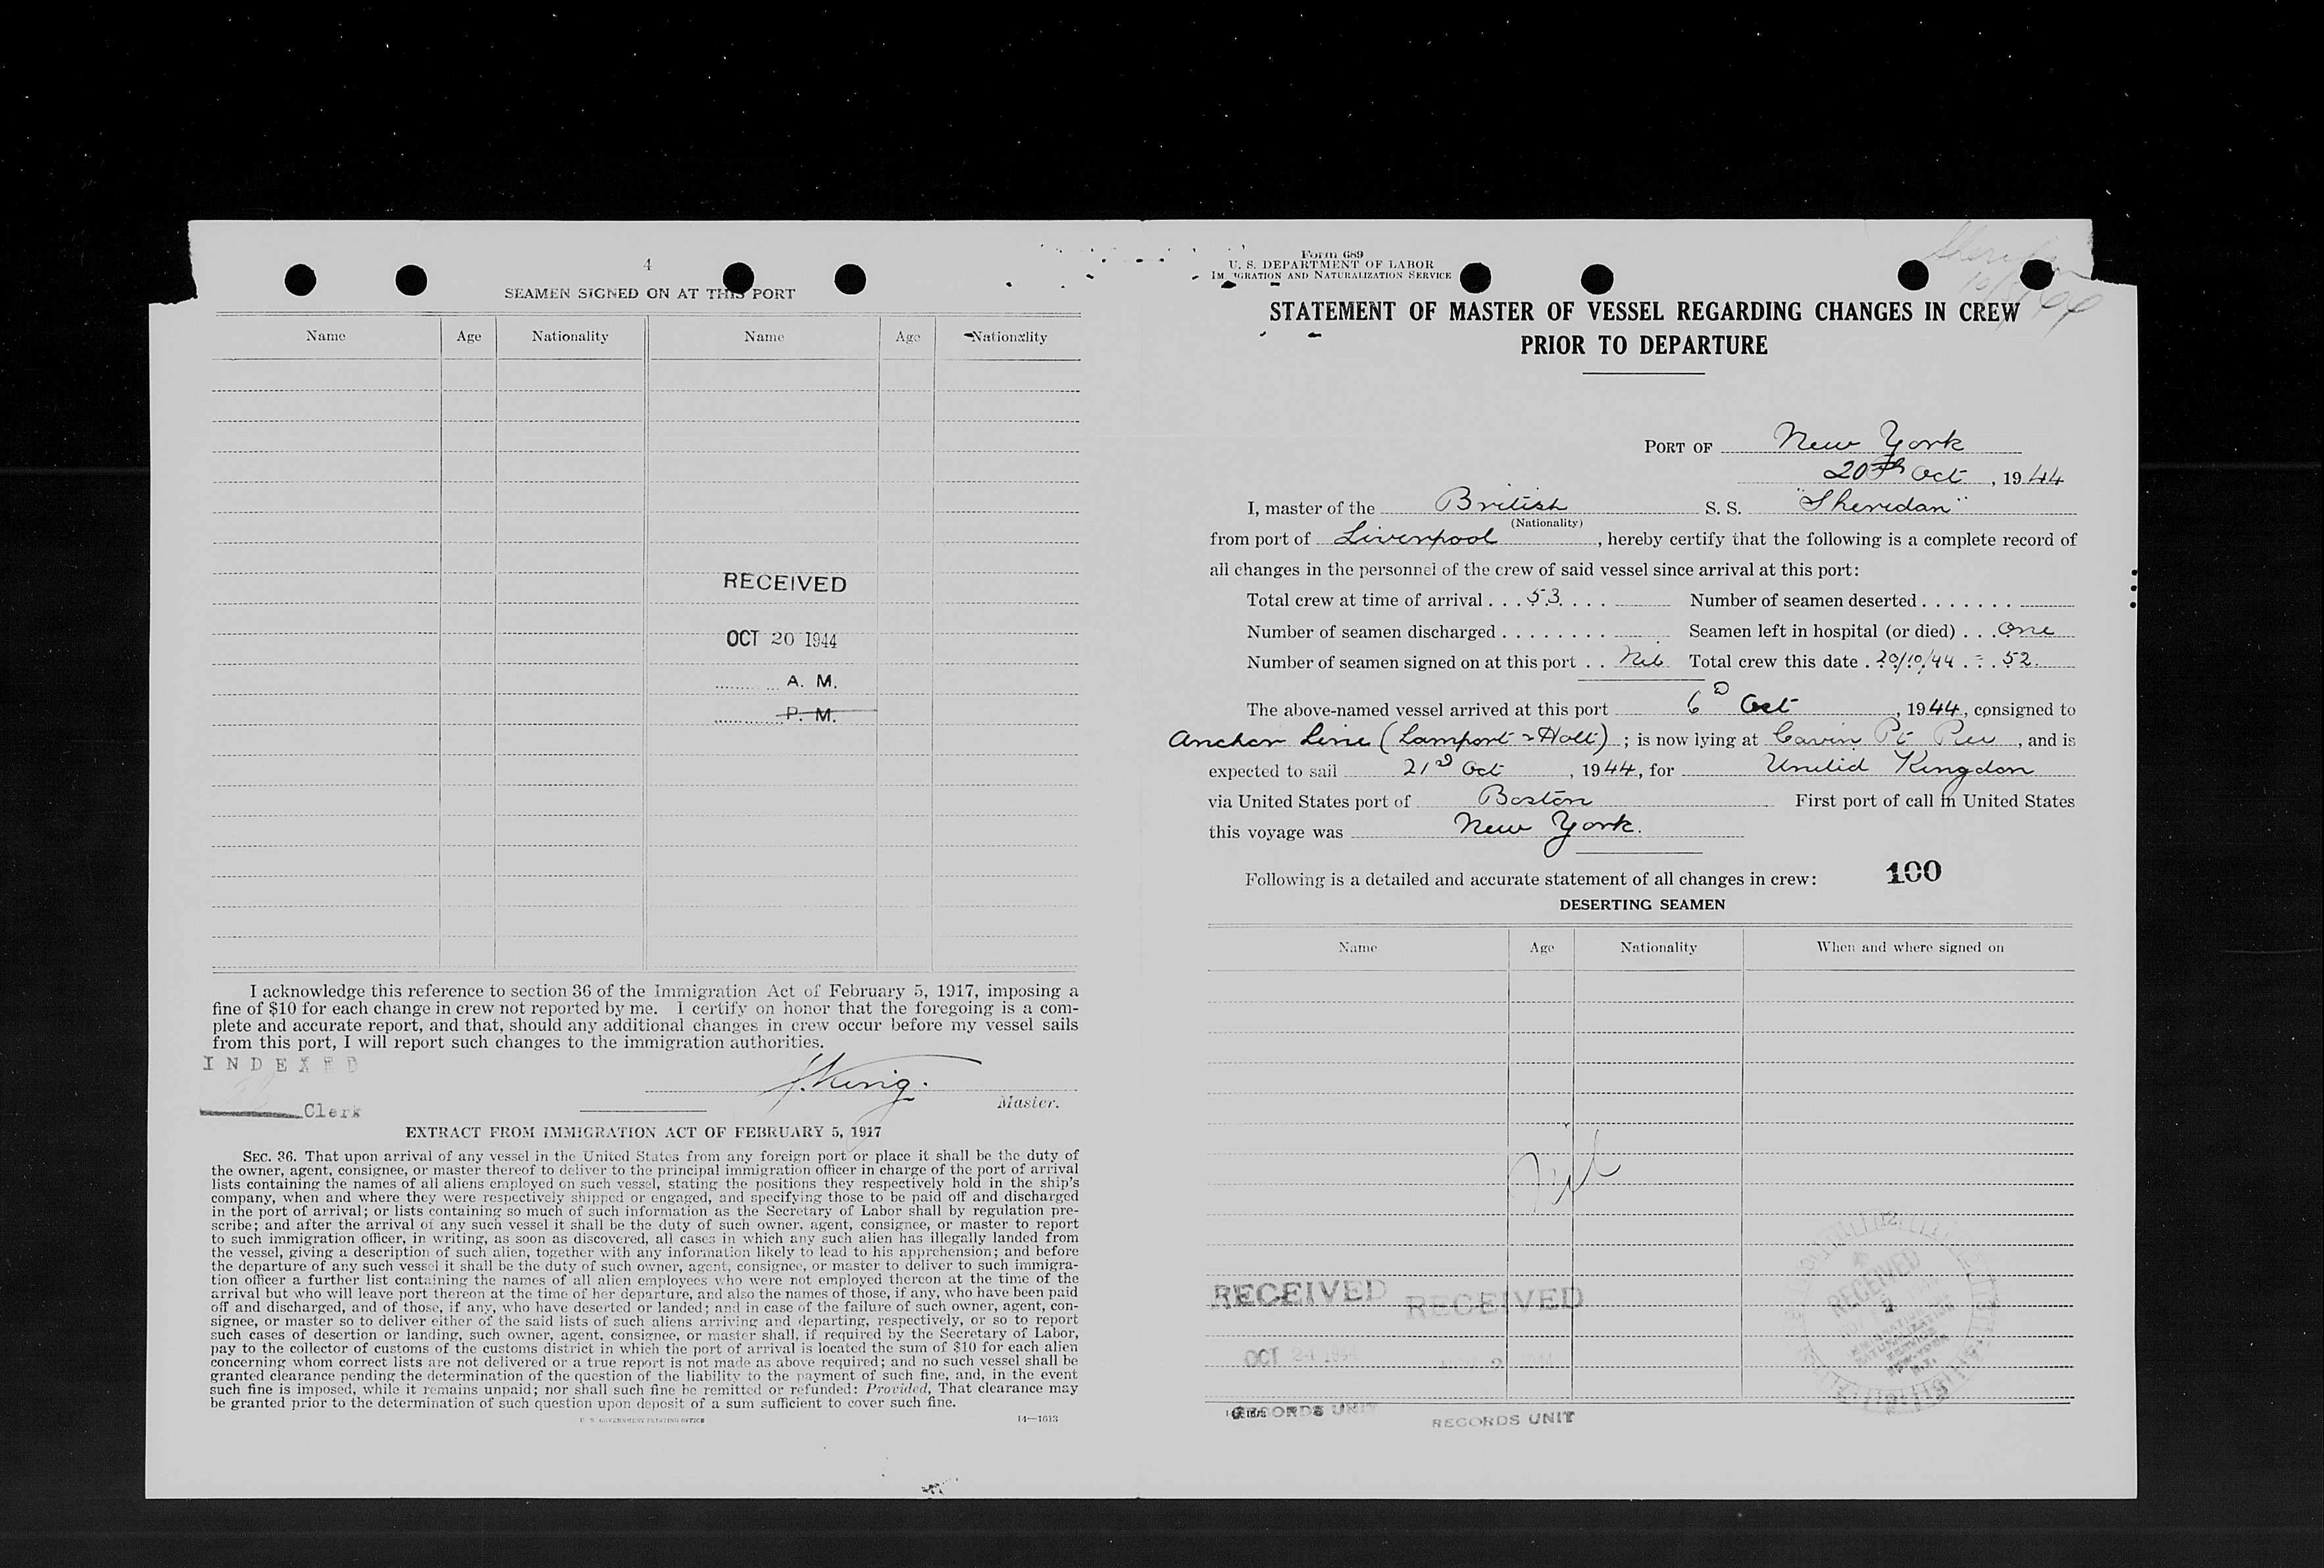 4
SEAMEN SIGNED ON AT THIS PORT
Name Age Nationality Name Age Nationality
RECEIVED
OCT 20 1944
A. M.
P. M.
I acknowledge this reference to section 36 of the Immigration Act of February 5, 1917, imposing a
fine of $10 for each change in crew not reported by me. I certify on honor that the foregoing is a com-
plete and accurate report, and that, should any additional changes in crew occur before my vessel sails
from this port, I will report such changes to the immigration authorities.
INDEXED
J. King.
Clerk
Master.
EXTRACT FROM IMMIGRATION ACT OF FEBRUARY 5, 1917
SEC. 36. That upon arrival of any vessel in the United States from any foreign port or place it shall be the duty of
the owner, agent, consignee, or master thereof to deliver to the principal immigration officer in charge of the port of arrival
lists containing the names of all aliens employed on such vessel, stating the positions they respectively hold in the ship's
company, when and where they were respectively shipped or engaged, and specifying those to be paid off and discharged
in the port of arrival; or lists containing so much of such information as the Secretary of Labor shall by regulation pre-
scribe; and after the arrival of any such vessel it shall be the duty of such owner, agent, consignee, or master to report
to such immigration officer, in writing, as soon as discovered, all cases in which any such alien has illegally landed from
the vessel, giving a description of such alien, together with any information likely to lead to his apprehension; and before
the departure of any such vessel it shall be the duty of such owner, agent, consignee, or master to deliver to such immigra-
tion officer a further list containing the names of all alien employees who were not employed thereon at the time of the
arrival but who will leave port thereon at the time of her departure, and also the names of those, if any, who have been paid
off and discharged, and of those, if any, who have deserted or landed; and in case of the failure of such owner, agent, con-
signee, or master so to deliver either of the said lists of such aliens arriving and departing, respectively, or so to report
such cases of desertion or landing, such owner, agent, consignee, or master shall, if required by the Secretary of Labor,
pay to the collector of customs of the customs district in which the port of arrival is located the sum of $10 for each alien
concerning whom correct lists are not delivered or a true report is not made as above required; and no such vessel shall be
granted clearance pending the determination of the question of the liability to the payment of such fine, and, in the event
such fine is imposed, while it remains unpaid; nor shall such fine be remitted or refunded: Provided, That clearance may
be granted prior to the determination of such question upon deposit of a sum sufficient to cover such fine.
U. S. GOVERNMENT PRINTING OFFICE 14—1613
Form 689
U. S. DEPARTMENT OF LABOR
IMMIGRATION AND NATURALIZATION SERVICE
Sheridan
STATEMENT OF MASTER OF VESSEL REGARDING CHANGES IN CREW
PRIOR TO DEPARTURE
PORT OF New York
20th Oct, 1944
I, master of the British S. S. "Sheridan"
(Nationality)
from port of Liverpool, hereby certify that the following is a complete record of
all changes in the personnel of the crew of said vessel since arrival at this port:
Total crew at time of arrival . . . 53 . . . . Number of seamen deserted . . . . . . .
Number of seamen discharged . . . . . . . . Seamen left in hospital (or died) . . . One
Number of seamen signed on at this port . . Nil Total crew this date . 20/10/44 . - . 52.
The above-named vessel arrived at this port 6D Oct, 1944, consigned to
Anchor Line (Lamport & Holt); is now lying at Cavin Pt Pier, and is
expected to sail 21st Oct, 1944, for United Kingdon
via United States port of Boston First port of call in United States
this voyage was New York.
Following is a detailed and accurate statement of all changes in crew: 100
DESERTING SEAMEN
Name Age Nationality When and where signed on
Nil
RECEIVED RECEIVED RECEIVED
OCT 24 1944
RECORDS UNIT RECORDS UNIT